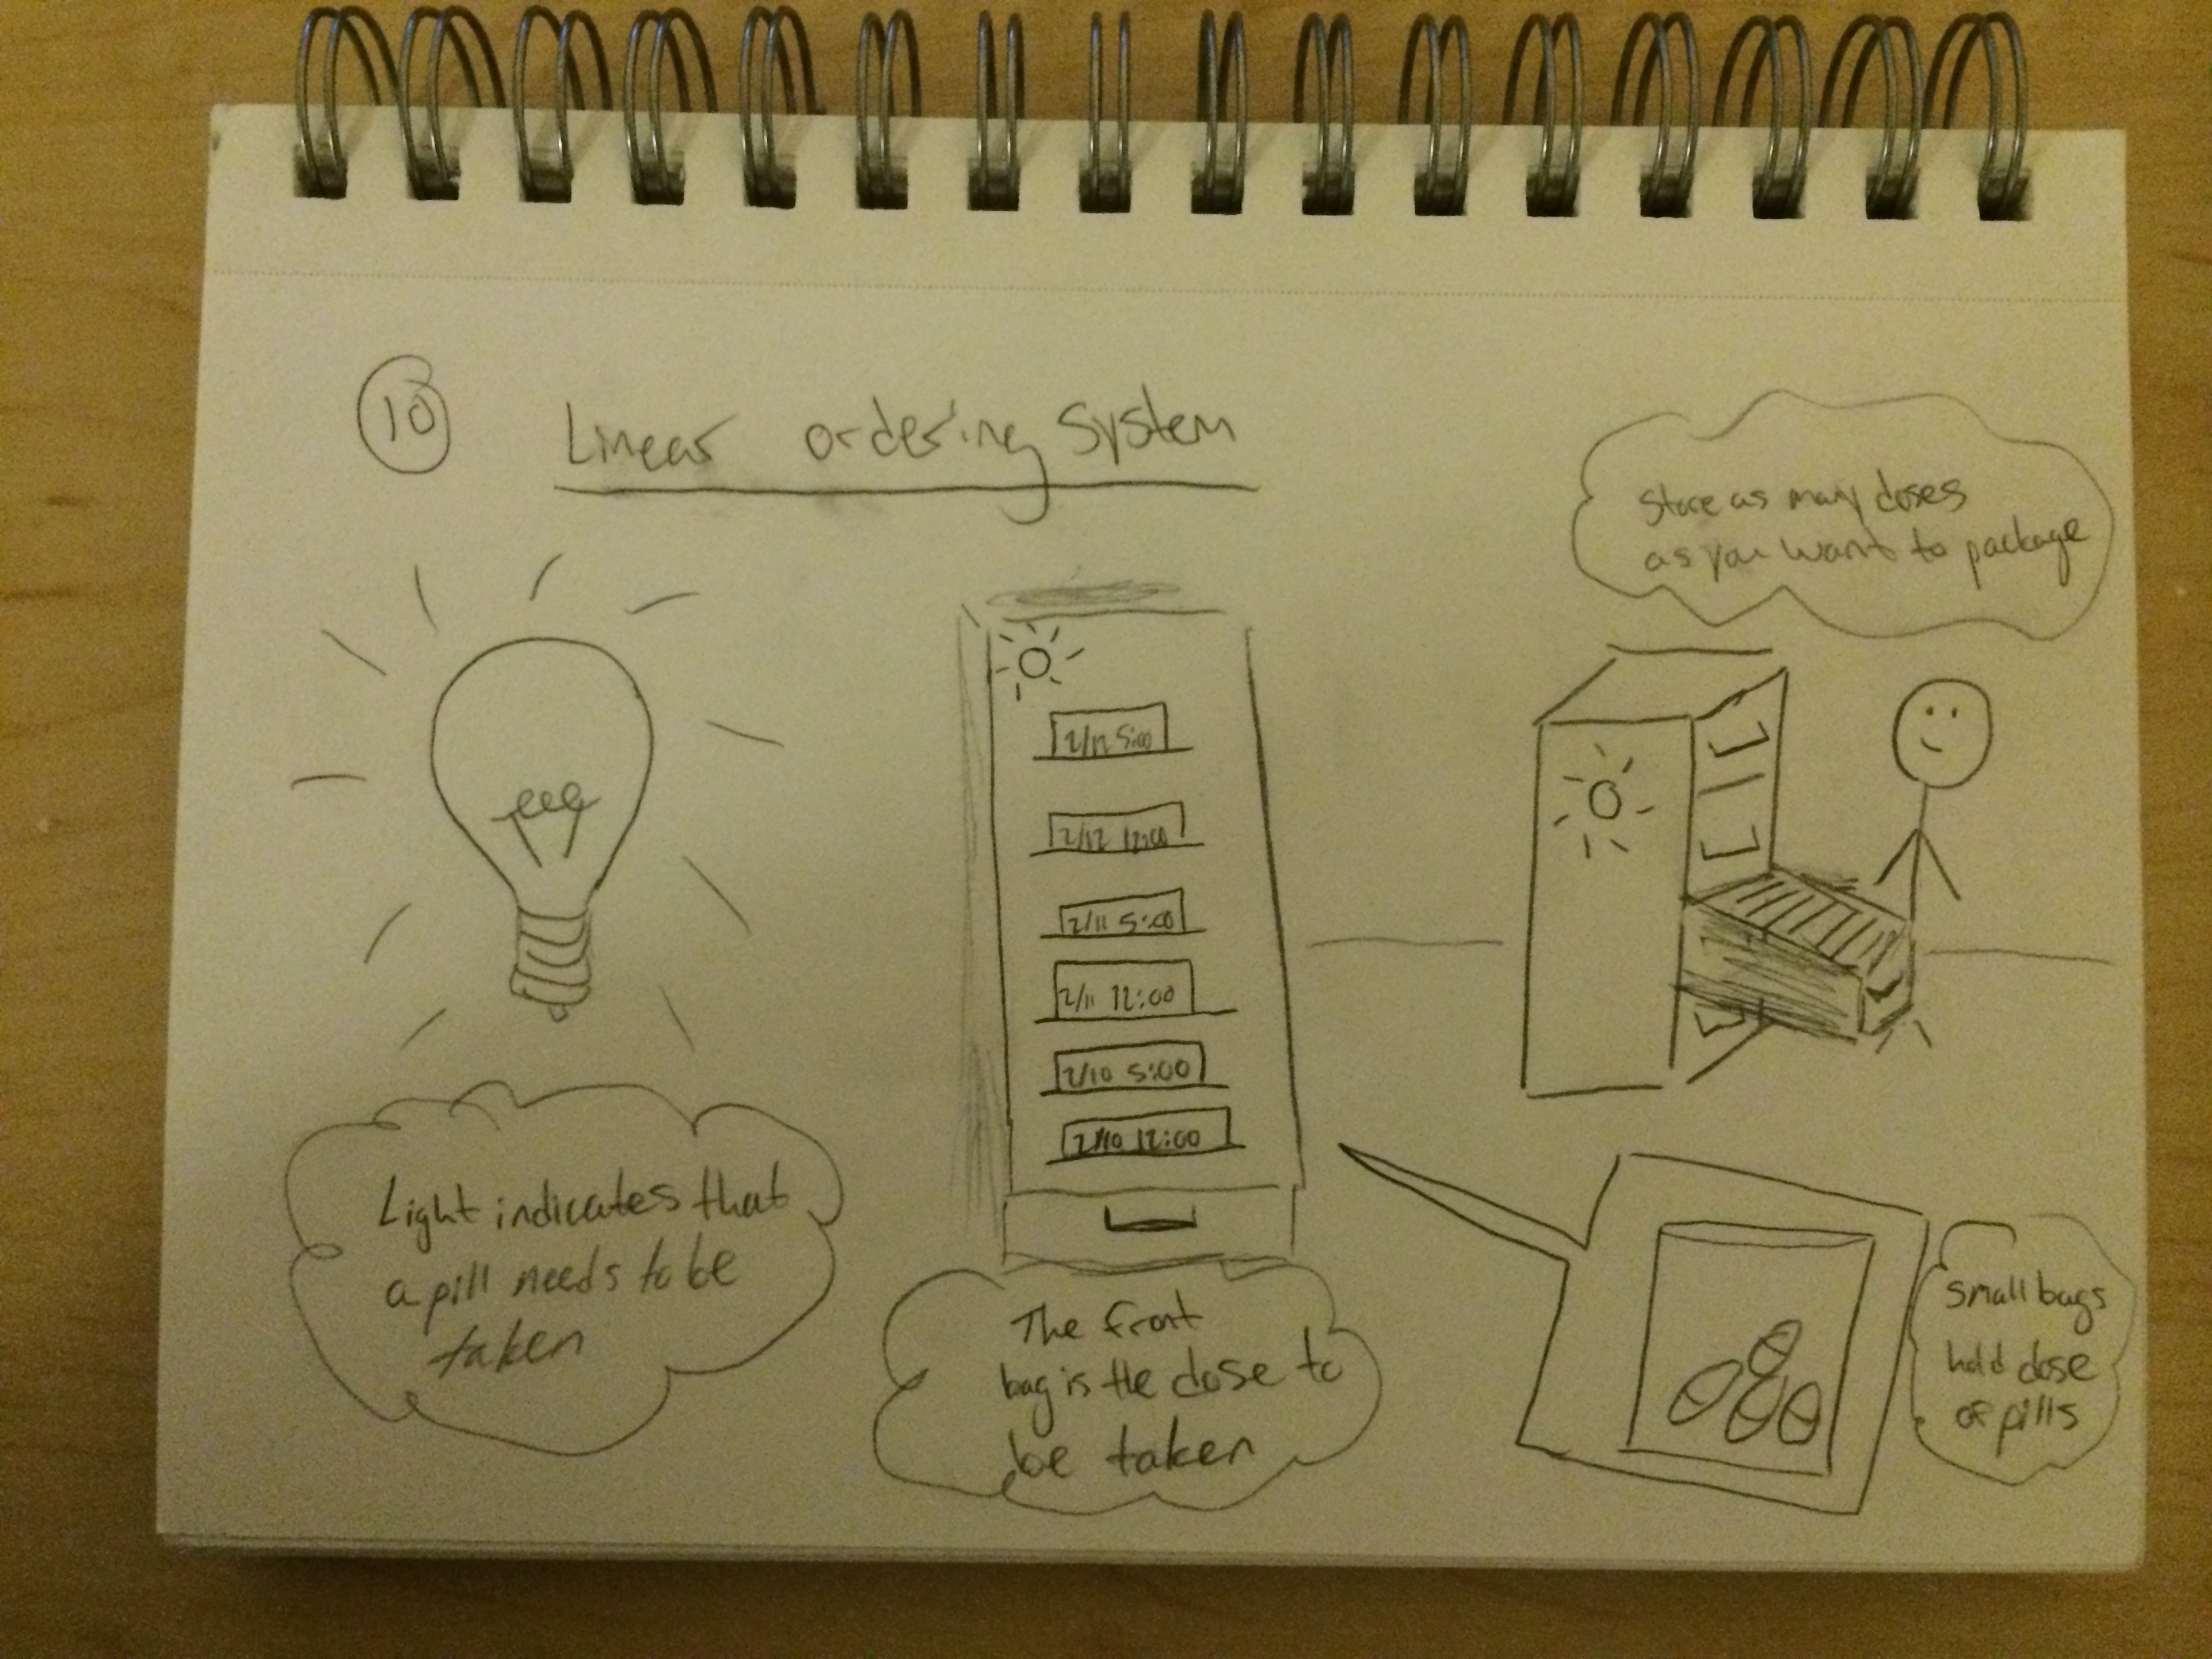 10
Linear ordering system
Store as many doses
as you want to package
2/12 5:00
2/12 12:00
2/11 5:00
2/11 12:00
2/10 5:00
2/10 12:00
Light indicates that
a pill needs to be
taken
The front
bag is the dose to
be taken
Small bags
hold dose
of pills